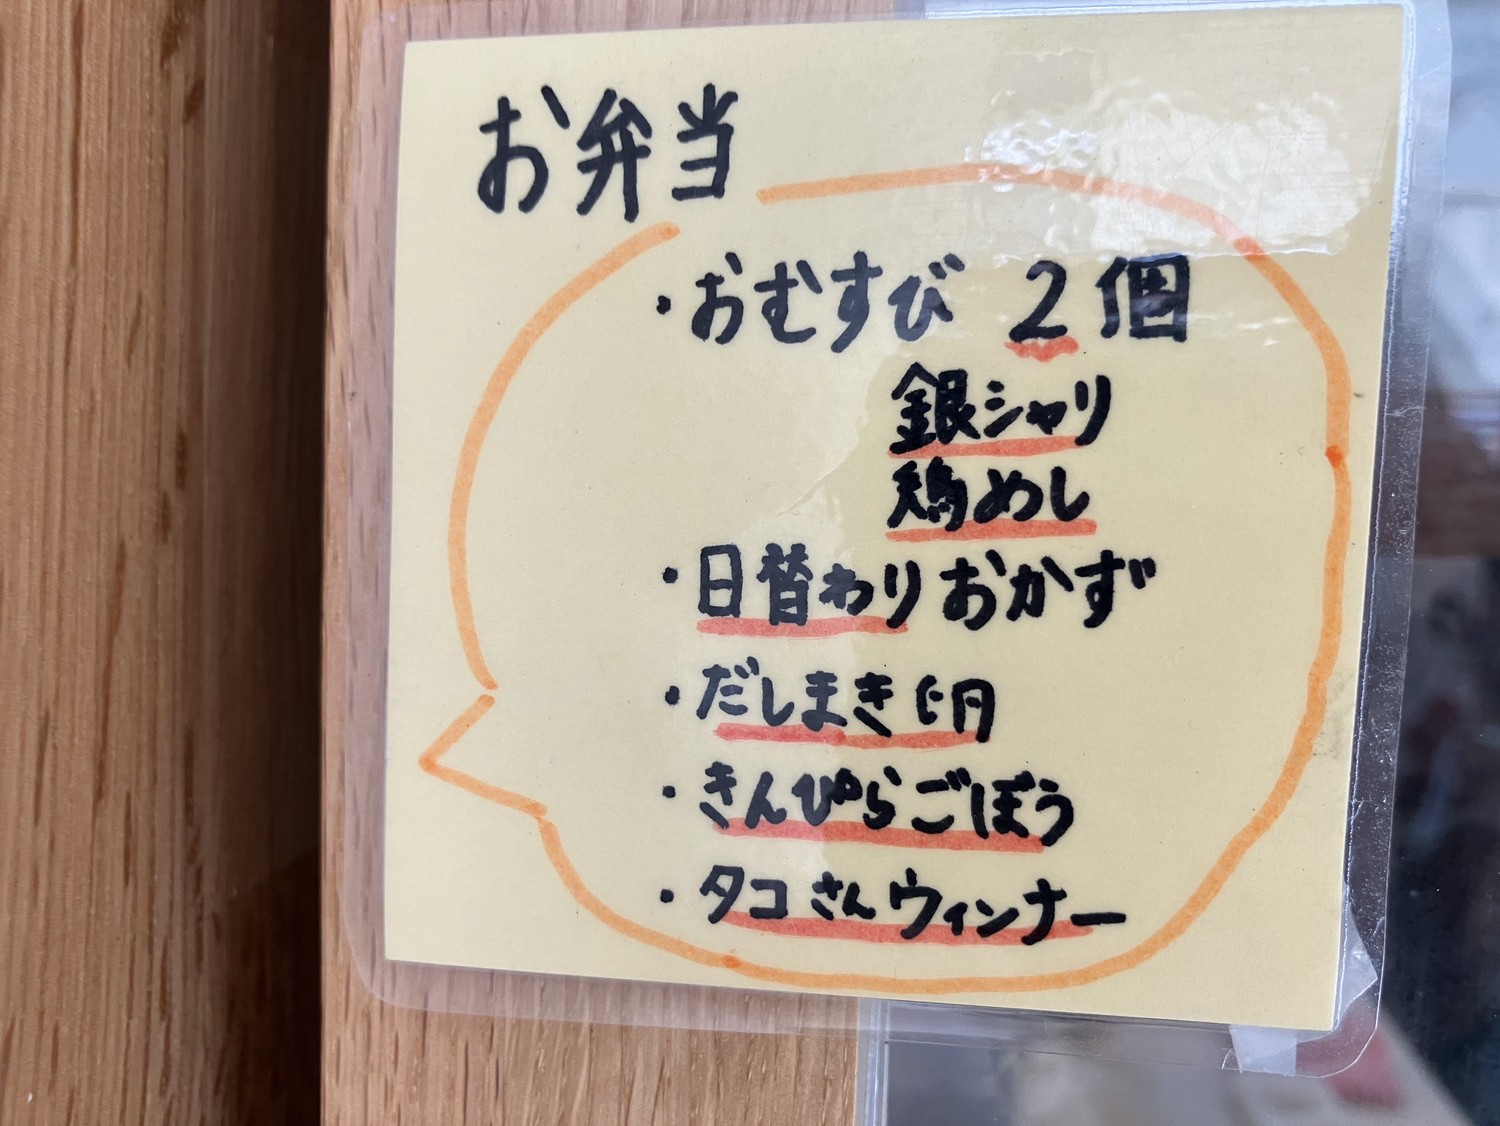 お弁当
・おむすび 2個
銀シャリ
鶏めし
・日替わりおかず
・だしまき卵
・きんぴらごぼう
・タコさんウィンナー